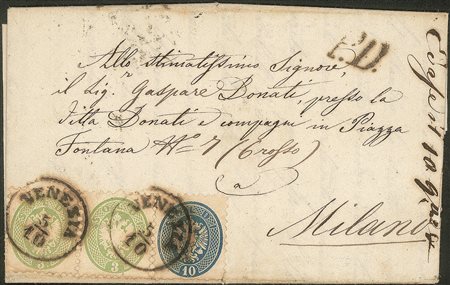 P.D.
Allo stimatissimo Signore,
il Sig. Gaspare Donati, presso la
ditta Donati e compagni in Piazza
Fontana No 7 (Grosso)
a
Milano
VENEZIA
5/10
VENEZIA
5/10
3
3
10